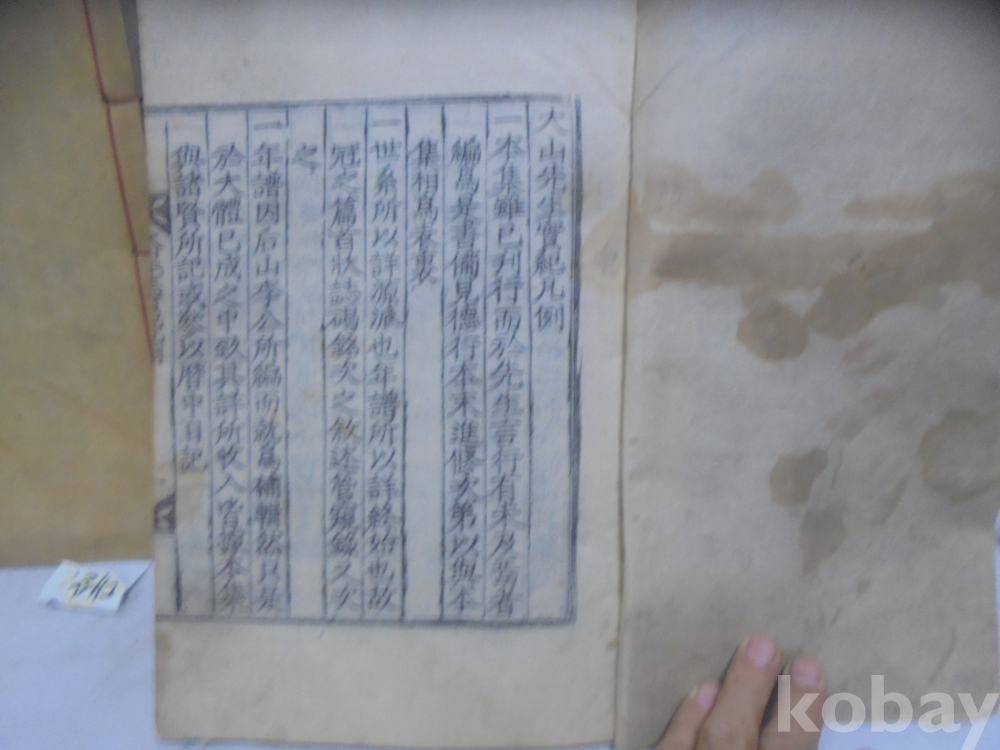 大山先生實紀凡例
一本集雖已刋行而於先生言行有未及焉者
編爲是書備見德行本末進修次第以與本
集相爲表裏
一世系所以詳源派也年譜所以詳終始也故
冠之篇首狀誌碣銘次之敘述管窺錄又次
之
一年譜因后山李公所編而就爲補輯然只是
於大體已成之中致其詳所收入皆源本集
與諸賢所記或參以曆中日記
kobay